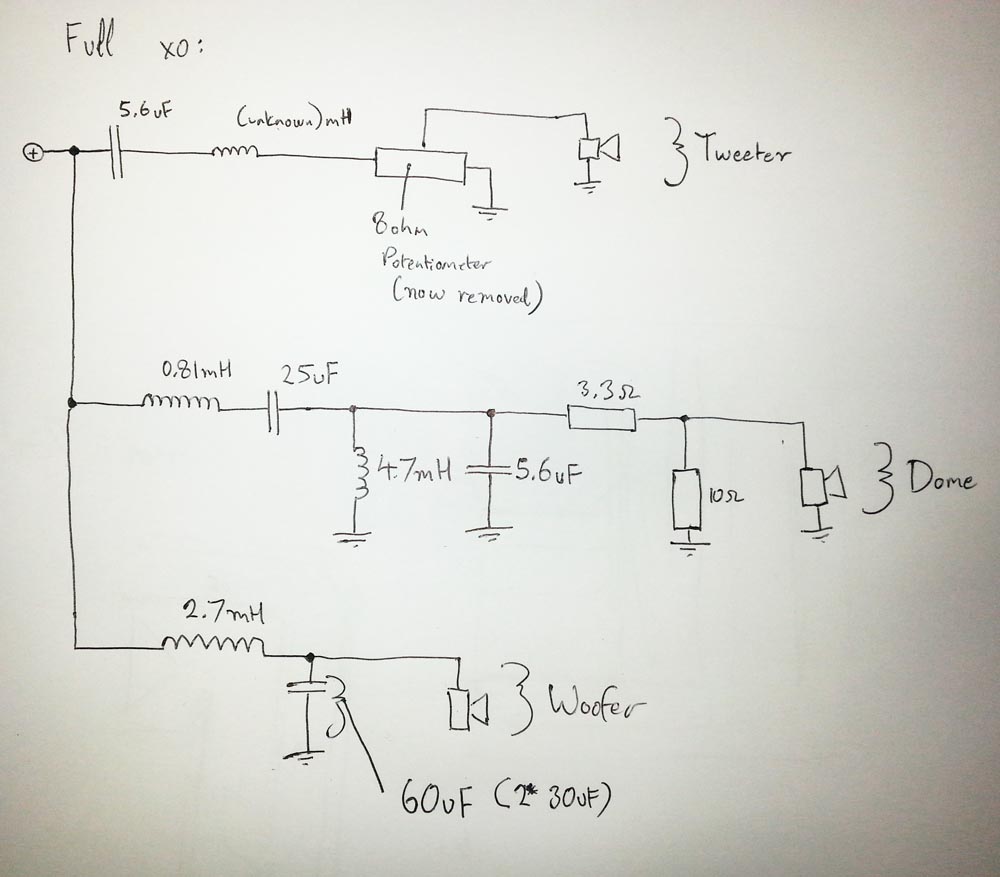 Full xo:
5.6uF
(unknown)mH
+
Tweeter
8ohm
Potentiometer
(now removed)
0.81mH
25uF
3.3Ω
4.7mH
5.6uF
10Ω
Dome
2.7mH
Woofer
60uF (2* 30uF)